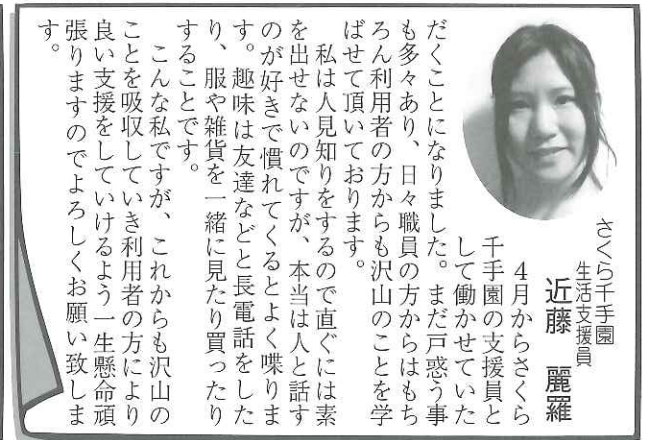 さくら千手園
生活支援員
近藤　麗羅
４月からさくら
千手園の支援員と
して働かせていた
だくことになりました。まだ戸惑う事
も多々あり、日々職員の方からはもち
ろん利用者の方からも沢山のことを学
ばせて頂いております。
私は人見知りをするので直ぐには素
を出せないのですが、本当は人と話す
のが好きで慣れてくるとよく喋りま
す。趣味は友達などと長電話をした
り、服や雑貨を一緒に見たり買ったり
することです。
こんな私ですが、これからも沢山の
ことを吸収していき利用者の方により
良い支援をしていけるよう一生懸命頑
張りますのでよろしくお願い致しま
す。